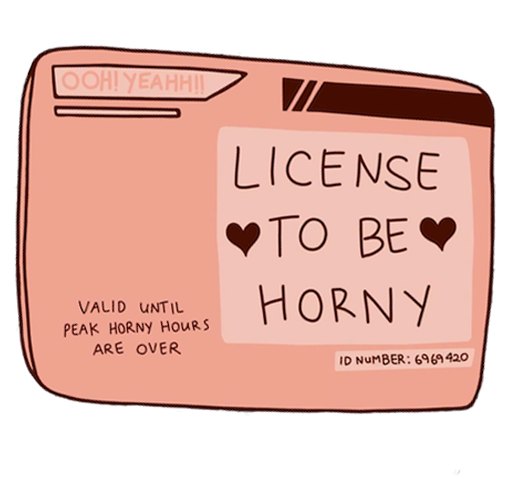 OOH! YEAHH!!
LICENSE
TO BE
HORNY
VALID UNTIL
PEAK HORNY HOURS
ARE OVER
ID NUMBER: 6969420